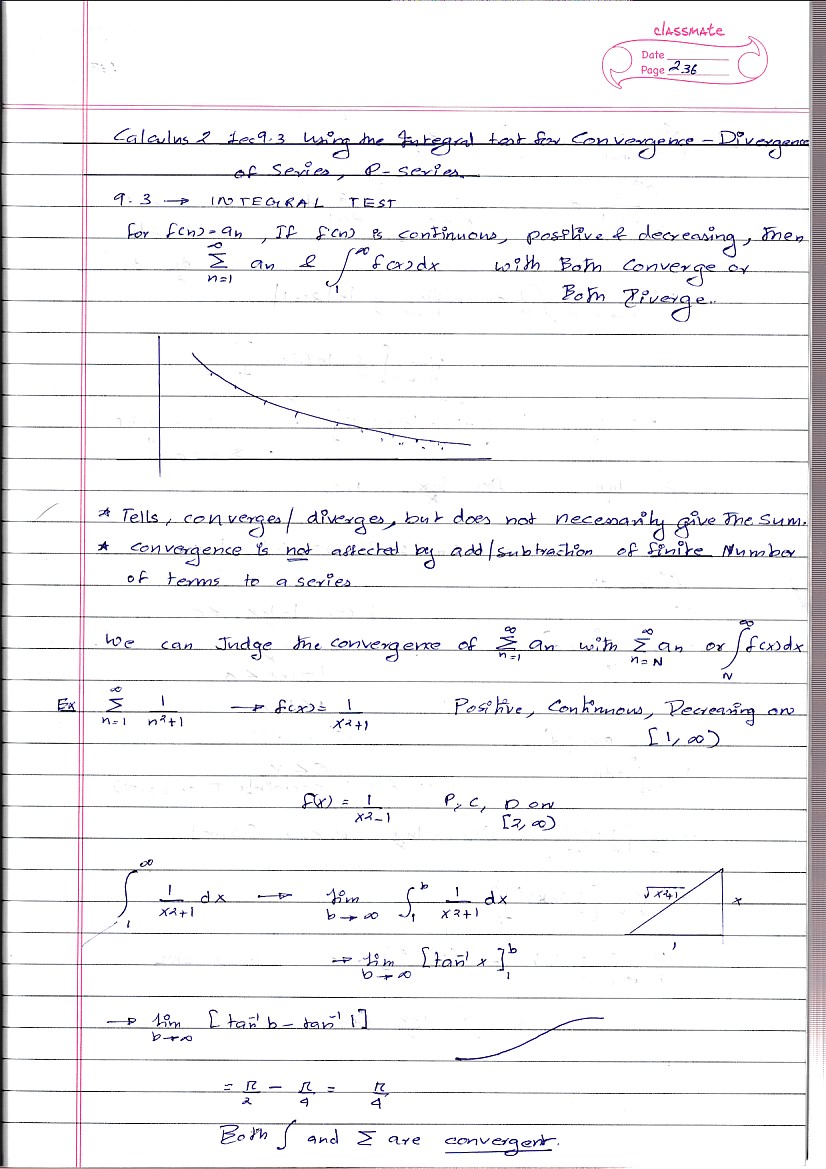 classmate
Date
Page 236
Calculus 2 Lec 9.3 Using the Integral test for Convergence – Divergence
of Series, P-series.
9.3 → INTEGRAL TEST
For f(n) = an, If f(n) is continuous, positive & decreasing, then
∞ Σ n=1 an & ∫ 1 ∞ f(x)dx with Both Converge or
Both Diverge.
* Tells, converges/ diverges, but does not necessarily give the sum.
* convergence is not affected by add/subtraction of finite Number
of terms to a series
We can Judge the convergence of ∞ Σ n=1 an with ∞ Σ n=N an or ∫ N ∞ f(x)dx
Ex ∞ Σ n=1 1/(n²+1) → f(x) = 1/(x²+1) Positive, Continuous, Decreasing on
[1, ∞)
f(x) = 1/(x²-1) P, C, D on
[2, ∞)
∫ 1 ∞ 1/(x²+1) dx → lim b→∞ ∫ 1 b 1/(x²+1) dx √x²+1 x
1
→ lim b→∞ [tan⁻¹ x] 1 b
→ lim b→∞ [tan⁻¹ b – tan⁻¹ 1]
= π/2 – π/4 = π/4
Both ∫ and Σ are convergent.